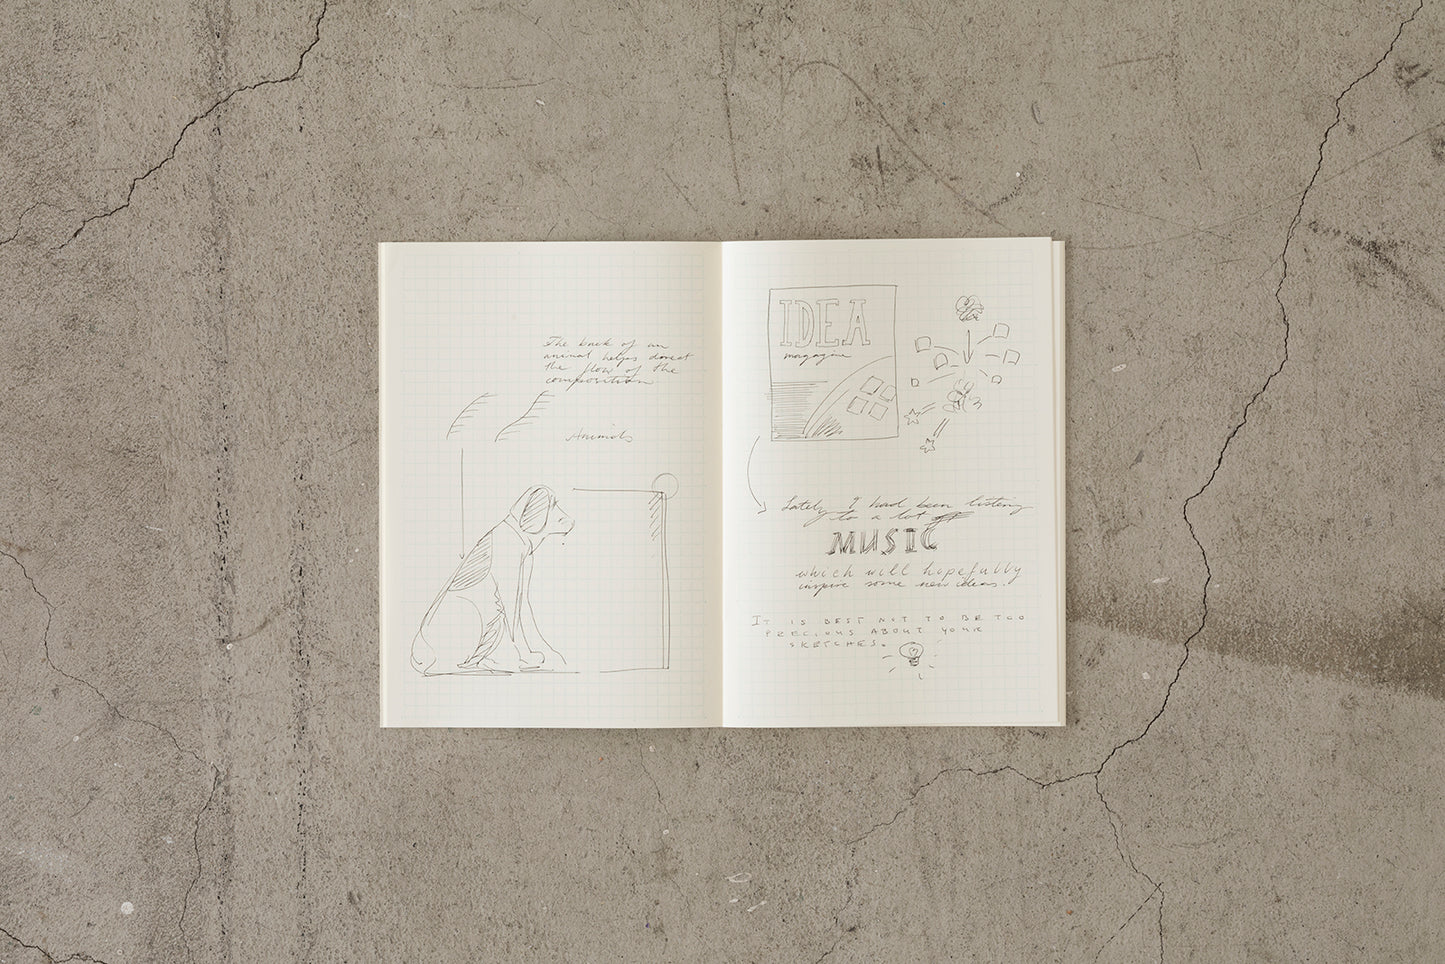 The back of an
animal helps direct
the flow of the
composition
Animals
IDEA
magazine
Lately I had been listing
to a lot of
MUSIC
which will hopefully
inspire some new ideas.
IT IS BEST NOT TO BE TOO
PRECIOUS ABOUT YOUR
SKETCHES.